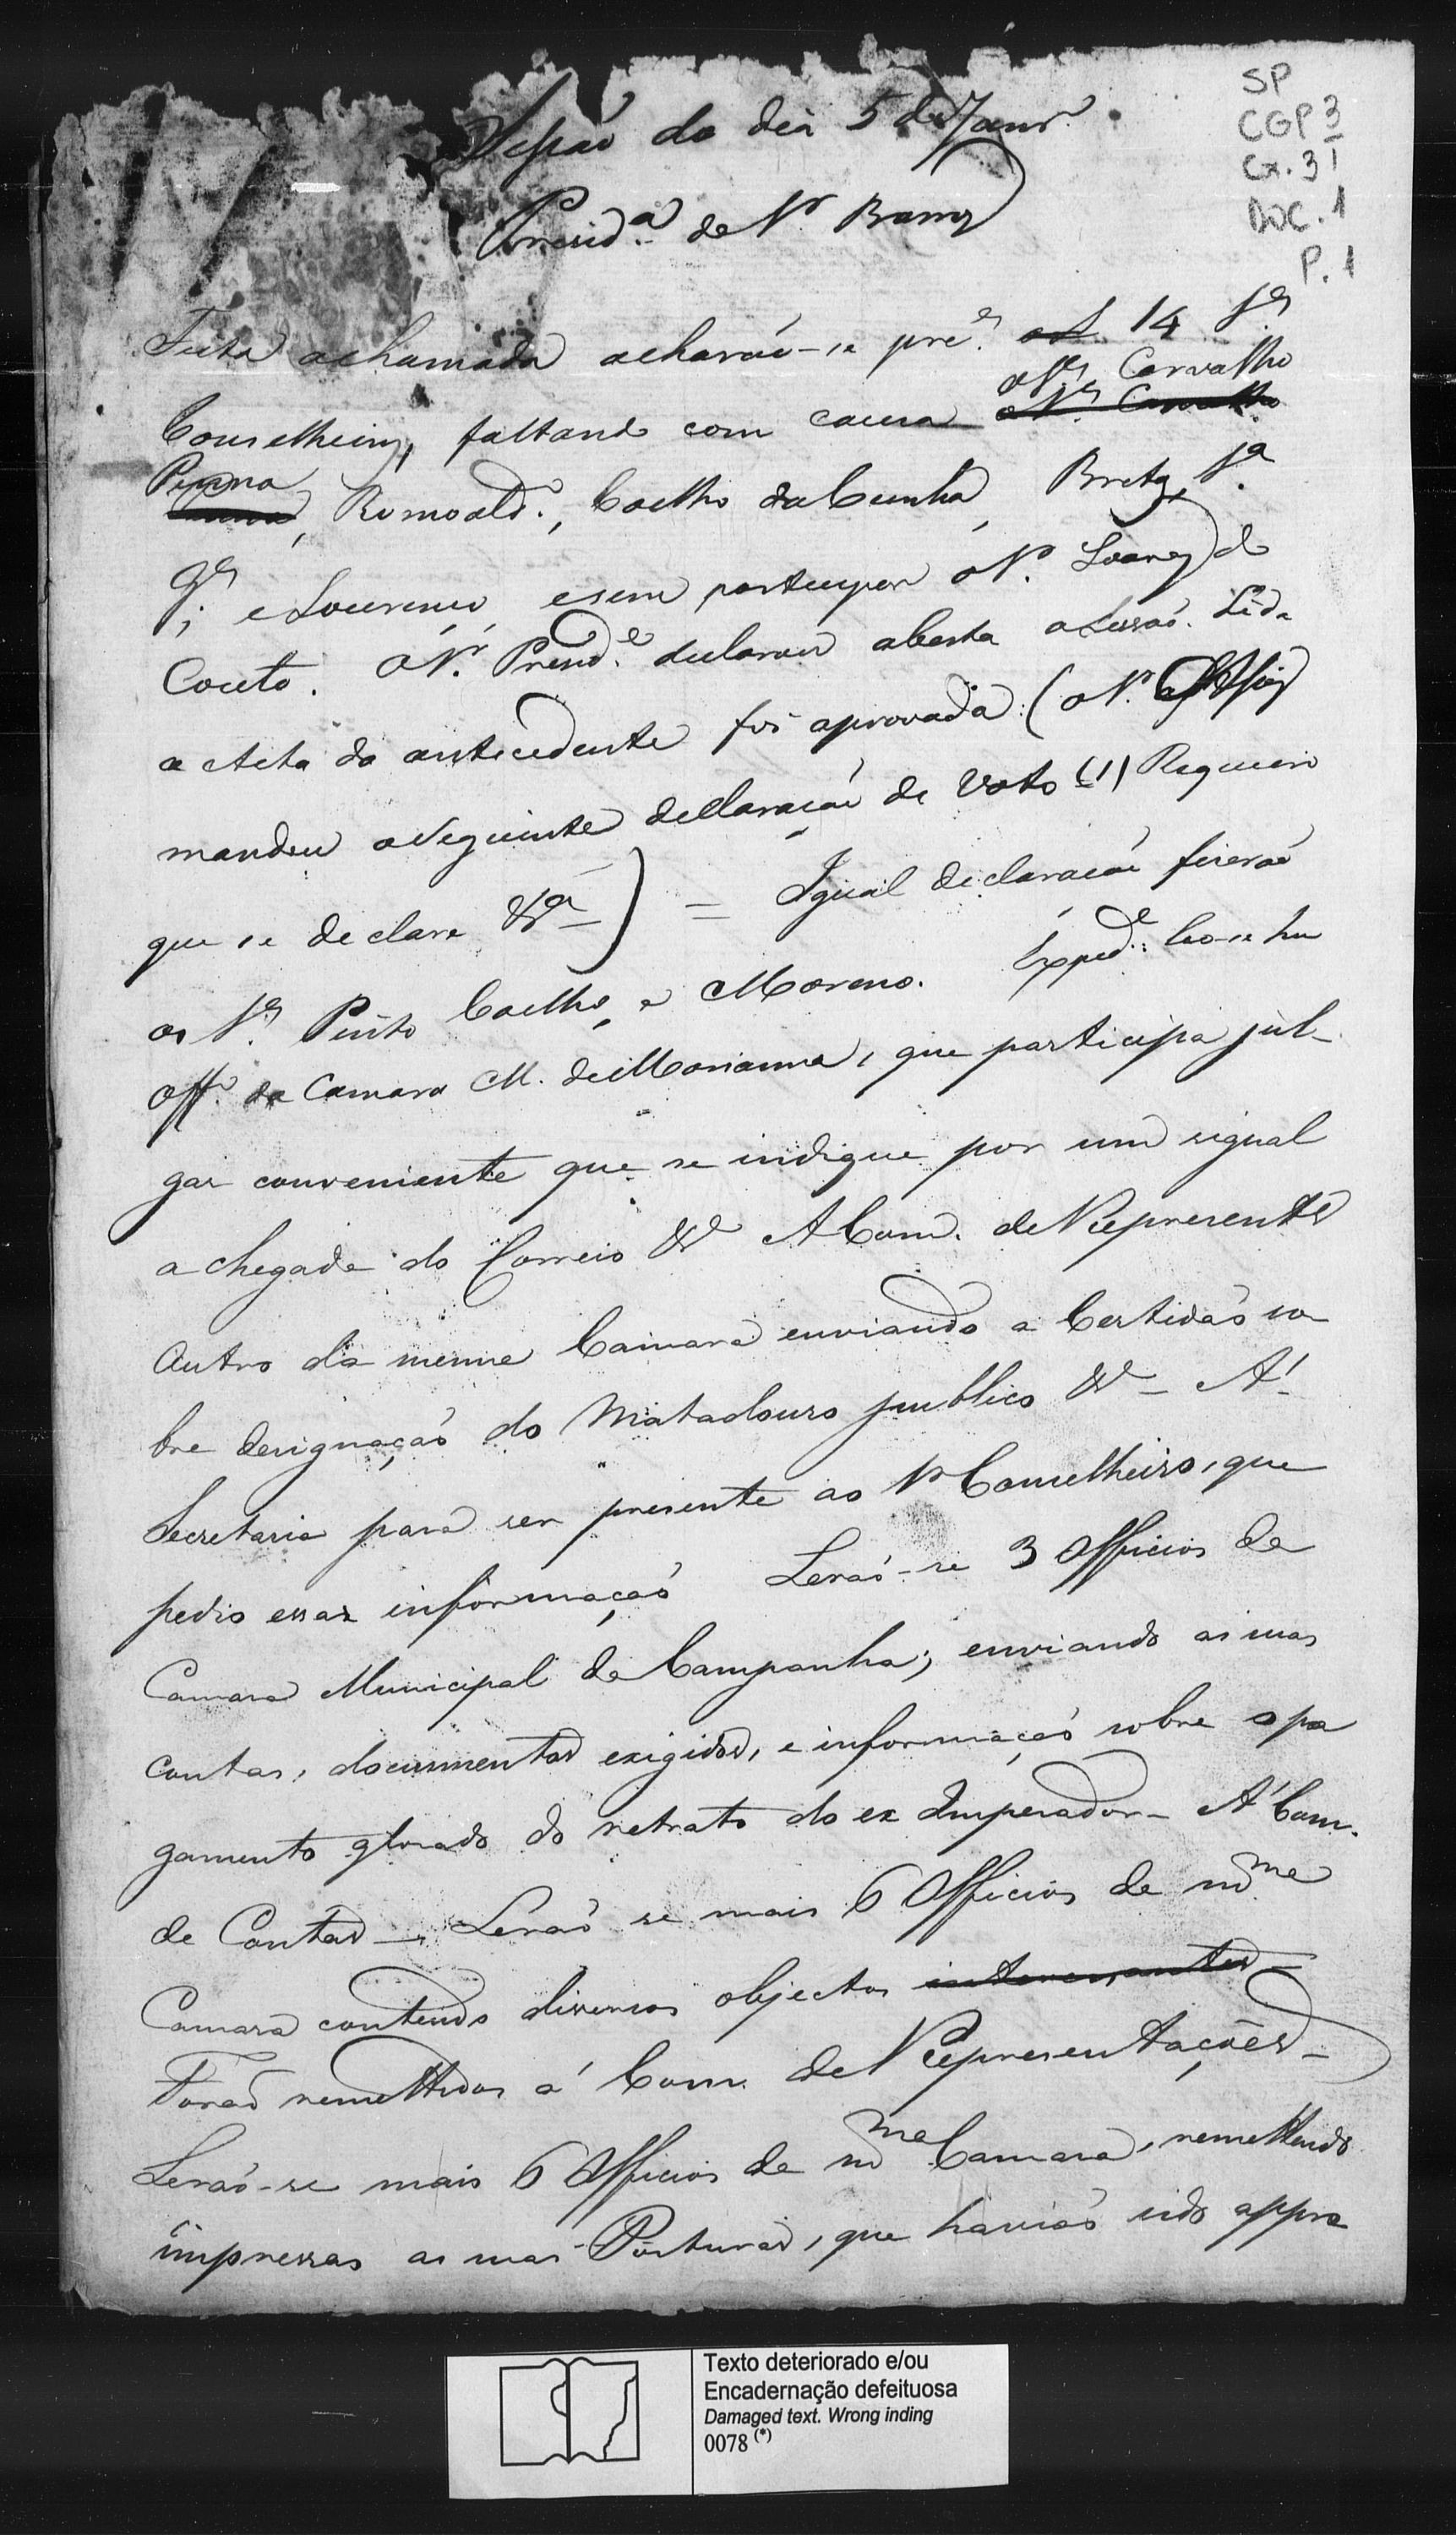 SP
CGP 3
Cx. 31
Doc. 1
P. 1
Sessaõ do dia 5 de Janr.º
Presid.ª do Sr. Barros
Feita a chamada acharaõ-se pre.es 14 Srs
Conselheiros, faltando com causa os Srs Carvalho
Penna, Romoaldo, Coelho da Cunha, Bretas, Sª
e Lourenço, e sem participar o Sr. Soares do
Couto. O Sr. Presid.e declarou aberta a Sessaõ. Lida
a Acta da antecedente foi aprovada: (o Sr.
mandou a seguinte declaraçaõ de voto (1) Requeiro
que se declare &ª ) = Igual declaraçaõ fizeraõ
os Srs. Pinto Coelho, e Moreno. Exped.e: leo-se hu
Off.º da Camara M. de Marianna, que participa jul-
gar conveniente que se indique por um signal
a chegada do Correio &ª A Com. de Represent.es
Outro da mesma Camara enviando a Certidaõ so
bre designaçaõ do Matadouro publico &ª - A'
Secretaria para ser presente ao Sr Conselheiro, que
pedio essas informaçaõ Leraõ-se 3 Officios da
Camara Municipal da Campanha; enviando as suas
contas, documentos exigidos, e informaçaõ sobre o pa
gamento glosado do retrato do ex Imperador - A' Com.
de Contas - Leraõ se mais 6 Officios da mme
Camara contendo diversos objectos interessantes -
Foraõ remettidos á Com. de Representações -
Leraõ-se mais 6 Officios da mma Camara, remettendo
impressas as suas Posturas, que haviaõ sido appro
Texto deteriorado e/ou
Encadernação defeituosa
Damaged text. Wrong inding
0078 (*)